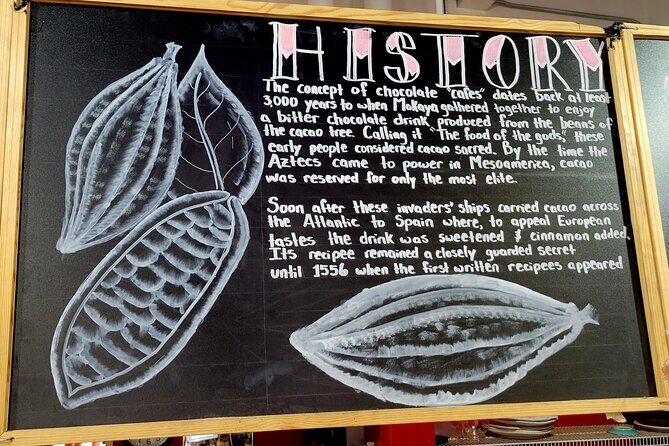 HISTORY
The concept of chocolate "cafes" dates back at least
3,000 years to when Mokaya gathered together to enjoy
a bitter chocolate drink produced from the beans of
the cacao tree. Calling it "The food of the gods," these
early people considered cacao sacred. By the time the
Aztecs came to power in Mesoamerica, cacao
was reserved for only the most elite.
Soon after these invaders' ships carried cacao across
the Atlantic to Spain where, to appeal European
tastes the drink was sweetened & cinnamon added.
Its recipee remained a closely guarded secret
until 1556 when the first written recipees appeared